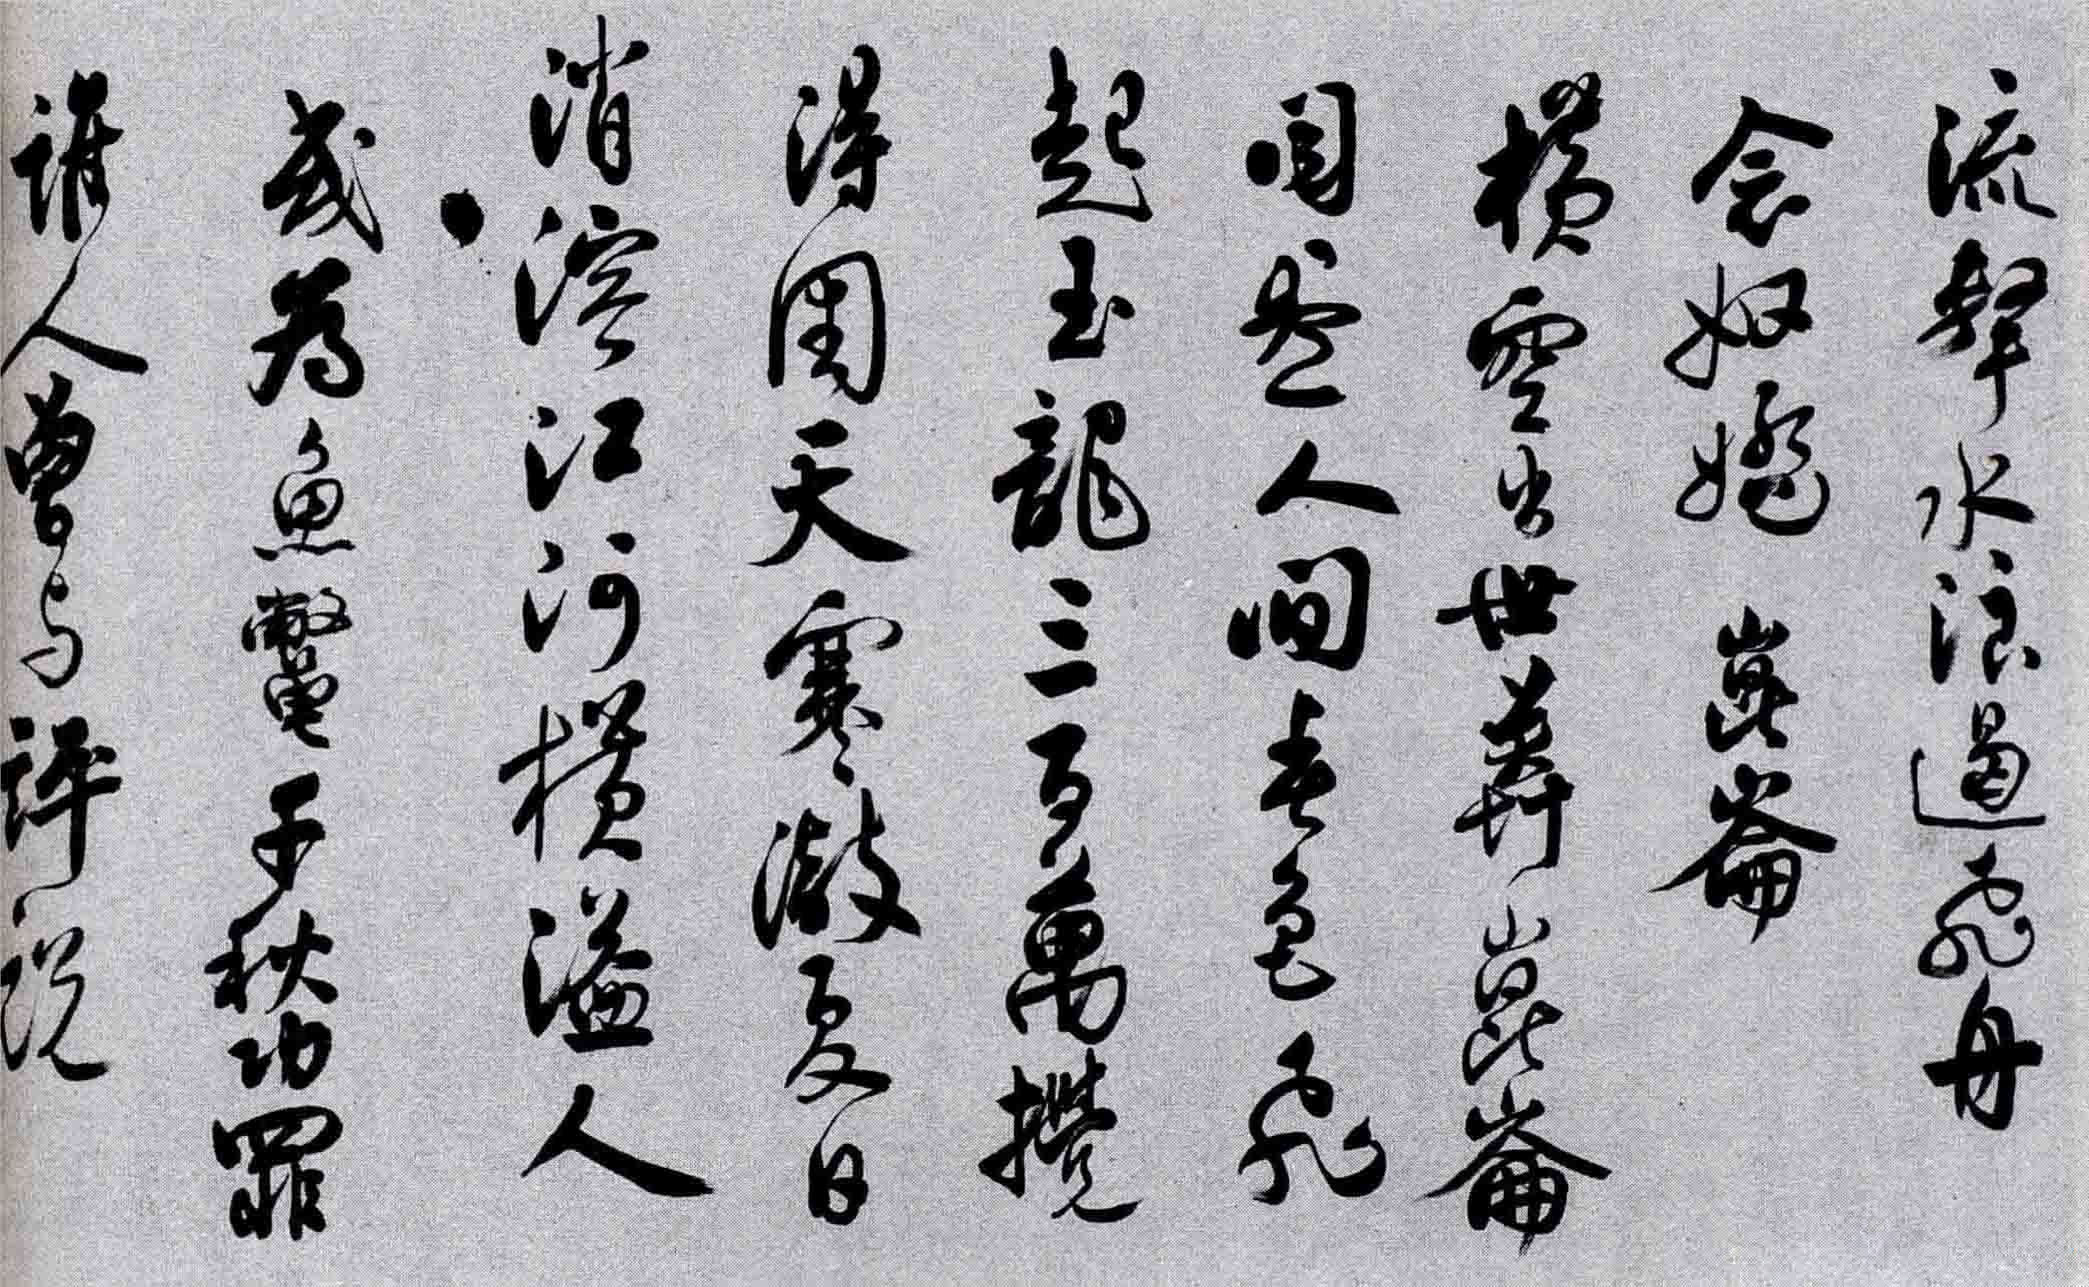 流擊水浪遏飛舟
念奴嬌 崑崙
橫空出世莽崑崙
閱盡人間春色飛
起玉龍三百萬攪
得周天寒澈夏日
消溶江河橫溢人
或為魚鱉千秋功罪
誰人曾与評説